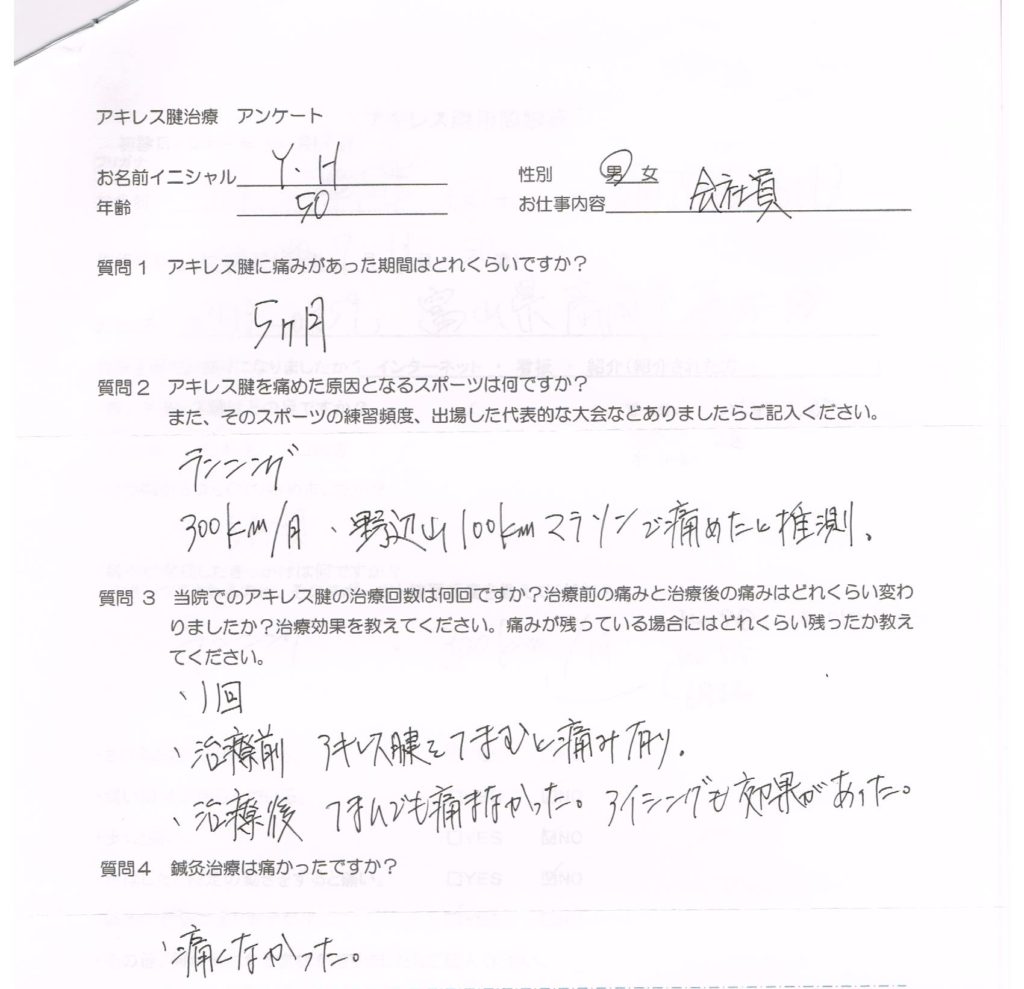 アキレス腱治療 アンケート
お名前イニシャル Y.H 性別 男 女
年齢 50 お仕事内容 会社員
質問1 アキレス腱に痛みがあった期間はどれくらいですか?
5ヶ月
質問2 アキレス腱を痛めた原因となるスポーツは何ですか?
また、そのスポーツの練習頻度、出場した代表的な大会などありましたらご記入ください。
ランニング
300km/月、野辺山100kmマラソンで痛めたと推測。
質問3 当院でのアキレス腱の治療回数は何回ですか?治療前の痛みと治療後の痛みはどれくらい変わ
りましたか?治療効果を教えてください。痛みが残っている場合にはどれくらい残ったか教え
てください。
、1回
、治療前 アキレス腱をつまむと痛み有り。
、治療後 つまんでも痛まなかった。アイシングも効果があった。
質問4 鍼灸治療は痛かったですか?
、痛くなかった。